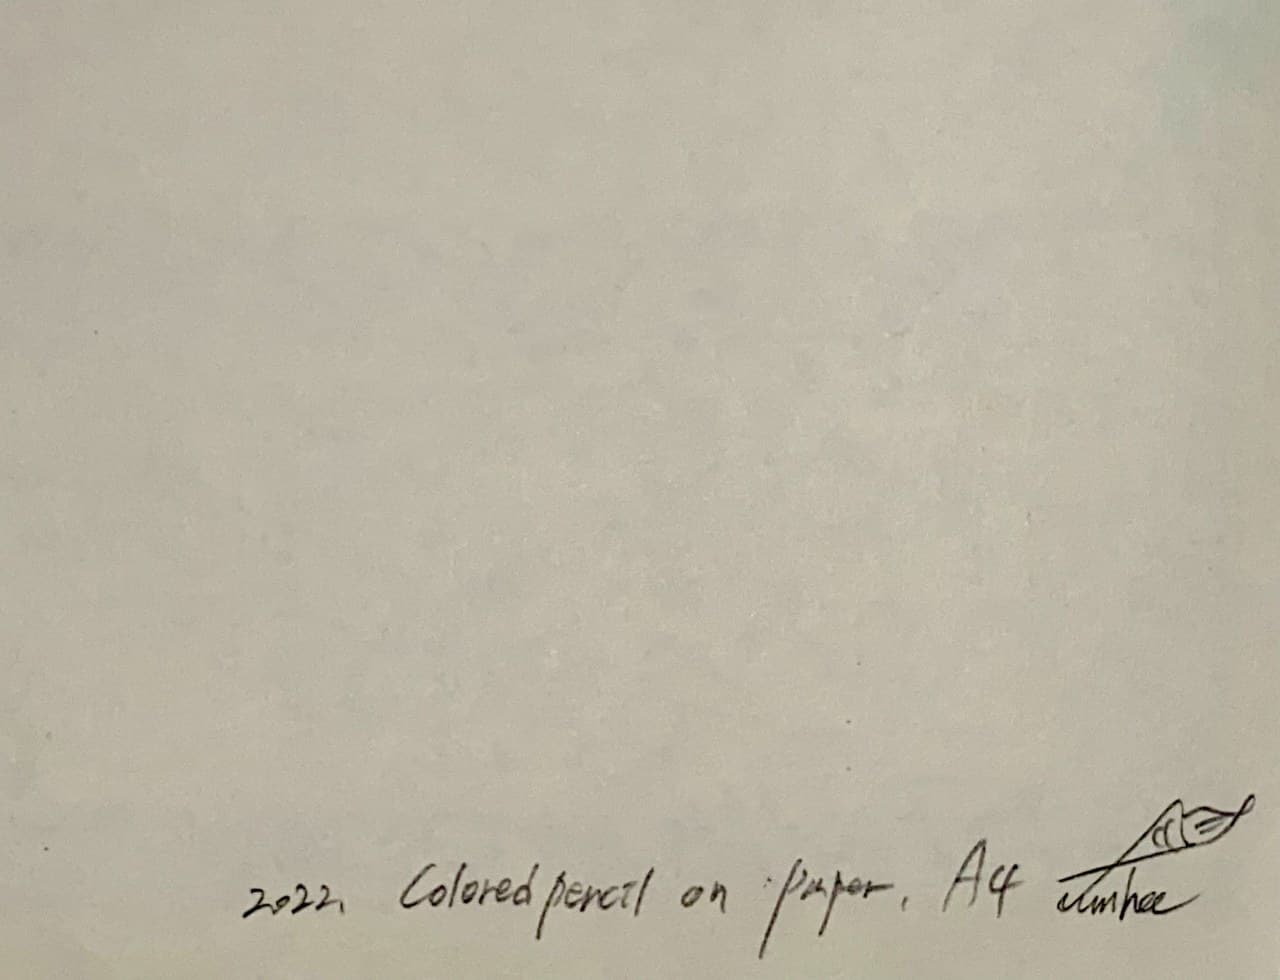 2022. Colored pencil on paper, A4